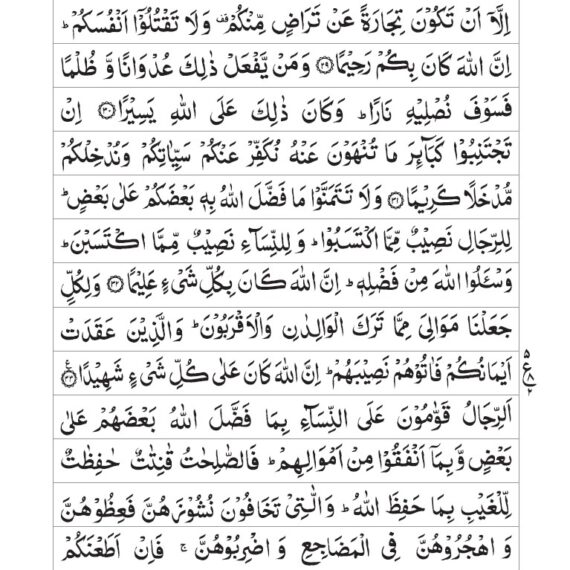 اِلَّاۤ اَنْ تَكُوْنَ تِجَارَةً عَنْ تَرَاضٍ مِّنْكُمْ ۫ وَ لَا تَقْتُلُوْۤا اَنْفُسَكُمْ ؕ
اِنَّ اللّٰهَ كَانَ بِكُمْ رَحِيْمًا ﴿۲۹﴾ وَ مَنْ يَّفْعَلْ ذٰلِكَ عُدْوَانًا وَّ ظُلْمًا
فَسَوْفَ نُصْلِيْهِ نَارًا ؕ وَ كَانَ ذٰلِكَ عَلَى اللّٰهِ يَسِيْرًا ﴿۳۰﴾ اِنْ
تَجْتَنِبُوْا كَبَآىِٕرَ مَا تُنْهَوْنَ عَنْهُ نُكَفِّرْ عَنْكُمْ سَيِّاٰتِكُمْ وَ نُدْخِلْكُمْ
مُّدْخَلًا كَرِيْمًا ﴿۳۱﴾ وَ لَا تَتَمَنَّوْا مَا فَضَّلَ اللّٰهُ بِهٖ بَعْضَكُمْ عَلٰى بَعْضٍ ؕ
لِلرِّجَالِ نَصِيْبٌ مِّمَّا اكْتَسَبُوْا ؕ وَ لِلنِّسَآءِ نَصِيْبٌ مِّمَّا اكْتَسَبْنَ ؕ
وَ سْـَٔلُوا اللّٰهَ مِنْ فَضْلِهٖ ؕ اِنَّ اللّٰهَ كَانَ بِكُلِّ شَیْءٍ عَلِيْمًا ﴿۳۲﴾ وَ لِكُلٍّ
جَعَلْنَا مَوَالِیَ مِمَّا تَرَكَ الْوَالِدٰنِ وَ الْاَقْرَبُوْنَ ؕ وَ الَّذِيْنَ عَقَدَتْ
اَيْمَانُكُمْ فَاٰتُوْهُمْ نَصِيْبَهُمْ ؕ اِنَّ اللّٰهَ كَانَ عَلٰى كُلِّ شَیْءٍ شَهِيْدًا ﴿۳۳﴾
اَلرِّجَالُ قَوّٰمُوْنَ عَلَى النِّسَآءِ بِمَا فَضَّلَ اللّٰهُ بَعْضَهُمْ عَلٰى
بَعْضٍ وَّ بِمَاۤ اَنْفَقُوْا مِنْ اَمْوَالِهِمْ ؕ فَالصّٰلِحٰتُ قٰنِتٰتٌ حٰفِظٰتٌ
لِّلْغَيْبِ بِمَا حَفِظَ اللّٰهُ ؕ وَ الّٰتِیْ تَخَافُوْنَ نُشُوْزَهُنَّ فَعِظُوْهُنَّ
وَ اهْجُرُوْهُنَّ فِی الْمَضَاجِعِ وَ اضْرِبُوْهُنَّ ۚ فَاِنْ اَطَعْنَكُمْ